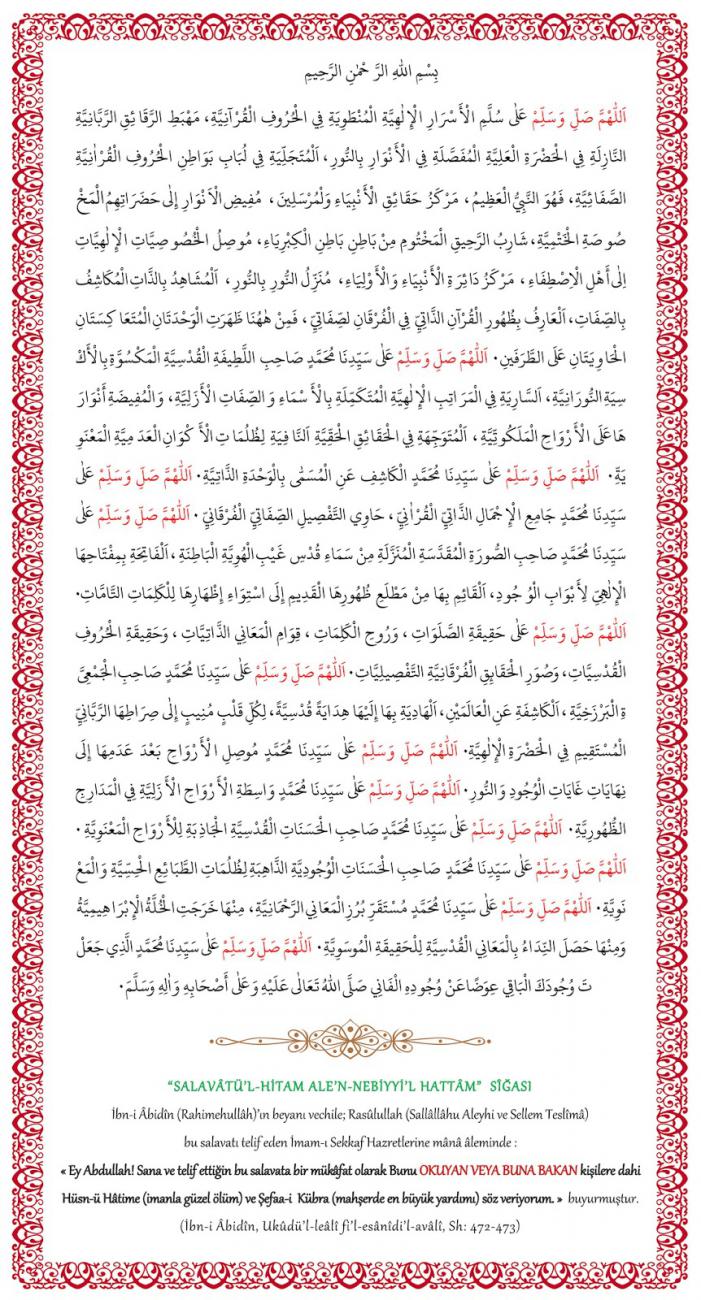 بِسْمِ اللهِ الرَّ حْمٰنِ الرَّحِيمِ
اَللّٰهُمَّ صَلِّ وَسَلِّمْ عَلٰى سُلَّمِ الْأَسْرَارِ الْإِلٰهِيَّةِ الْمُنْطَوِيَةِ فِي الْحُرُوفِ الْقُرْآنِيَّةِ، مَهْبَطِ الرَّقَائِقِ الرَّبَّانِيَّةِ
النَّازِلَةِ فِي الْحَضْرَةِ الْعَلِيَّةِ الْمُفَصَّلَةِ فِي الْأَنْوَارِ بِالنُّورِ، اَلْمُتَجَلِّيَةِ فِي لُبَابِ بَوَاطِنِ الْحُرُوفِ الْقُرْاٰنِيَّةِ
الصَّفَائِيَّةِ، فَهُوَ النَّبِيُّ الْعَظِيمُ، مَرْكَزُ حَقَائِقِ الْأَنْبِيَاءِ وَلْمُرْسَلِينَ، مُفِيضِ الْاَنْوَارِ إِلٰى حَضَرَاتِهِمُ الْمَخْ
صُوصَةِ الْخَتْمِيَّةِ، شَارِبُ الرَّحِيقِ الْمَخْتُومِ مِنْ بَاطِنِ بَاطِنِ الْكِبْرِيَاءِ، مُوصِلُ الْخُصُوصِيَّاتِ الْإِلٰهِيَّاتِ
اِلٰى أَهْلِ الْاِصْطِفَاءِ، مَرْكَزُ دَائِرَةِ الْأَنْبِيَاءِ وَالْأَوْلِيَاءِ، مُنَزِّلُ النُّورِ بِالنُّورِ، اَلْمُشَاهِدُ بِالذَّاتِ الْمُكَاشِفُ
بِالصِّفَاتِ، اَلْعَارِفُ بِظُهُورِ الْقُرْآنِ الذَّاتِيِّ فِي الْفُرْقَانِ لصِفَاتِيِّ، فَمِنْ هٰهُنَا ظَهَرَتِ الْوَحْدَتَانِ الْمُتَعَا كِسَتَانِ
الْحَاوِيَتَانِ عَلَى الطَّرَفَيْنِ. اَللّٰهُمَّ صَلِّ وَسَلِّمْ عَلٰى سَيِّدِنَا مُحَمَّدٍ صَاحِبِ اللَّطِيفَةِ الْقُدْسِيَّةِ الْمَكْسُوَّةِ بِالْأَكْ
سِيَةِ النُّورَانِيَّةِ، اَلسَّارِيَةِ فِي الْمَرَاتِبِ الْإِلٰهِيَّةِ الْمُتَكَمِّلَةِ بِالْأَسْمَاءِ وَالصِّفَاتِ الْأَزَلِيَّةِ، وَالْمُفِيضَةِ أَنْوَارَ
هَا عَلَى الْأَرْوَاحِ الْمَلَكُوتِيَّةِ، اَلْمُتَوَجِّهَةِ فِي الْحَقَائِقِ الْحَقِّيَّةِ اَلنَّافِيَةِ لِظُلُمَاتِ الْأَ كْوَانِ الْعَدَ مِيَّةِ الْمَعْنَوِ
يَةِ. اَللّٰهُمَّ صَلِّ وَسَلِّمْ عَلٰى سَيِّدِنَا مُحَمَّدٍ الْكَاشِفِ عَنِ الْمُسَمّٰى بِالْوَحْدَةِ الذَّاتِيَّةِ. اَللّٰهُمَّ صَلِّ وَسَلِّمْ عَلٰى
سَيِّدِنَا مُحَمَّدٍ جَامِعِ الْإِجْمَالِ الذَّاتِيِّ الْقُرْاٰنِيِّ، حَاوِي التَّفْصِيلِ الصِّفَاتِيِّ الْفُرْقَانِيِّ. اَللّٰهُمَّ صَلِّ وَسَلِّمْ عَلٰى
سَيِّدِنَا مُحَمَّدٍ صَاحِبِ الصُّورَةِ الْمُقَدَّسَةِ الْمُنَزَّلَةِ مِنْ سَمَاءِ قُدْسِ غَيْبِ الْهُوِيَّةِ الْبَاطِنَةِ، اَلْفَاتِحَةِ بِمِفْتَاحِهَا
الْإِلٰهِيِّ لِأَبْوَابِ الْوُجُودِ، اَلْقَائِمِ بِهَا مِنْ مَطْلَعِ ظُهُورِهَا الْقَدِيمِ إِلَى اسْتِوَاءِ إِظْهَارِهَا لِلْكَلِمَاتِ التَّامَّاتِ.
اَللّٰهُمَّ صَلِّ وَسَلِّمْ عَلٰى حَقِيقَةِ الصَّلَوَاتِ، وَرُوحِ الْكَلِمَاتِ، قِوَامِ الْمَعَانِي الذَّاتِيَّاتِ، وَحَقِيقَةِ الْحُرُوفِ
الْقُدْسِيَّاتِ، وَصُوَرِ الْحَقَايِقِ الْفُرْقَانِيَّةِ التَّفْصِيلِيَّاتِ. اَللّٰهُمَّ صَلِّ وَسَلِّمْ عَلٰى سَيِّدِنَا مُحَمَّدٍ صَاحِبِ الْجَمْعِيَّ
ةِ الْبَرْزَخِيَّةِ، اَلْكَاشِفَةِ عَنِ الْعَالَمَيْنِ، اَلْهَادِيَةِ بِهَا إِلَيْهَا هِدَايَةً قُدْسِيَّةً، لِكُلِّ قَلْبٍ مُنِيبٍ إِلٰى صِرَاطِهَا الرَّبَّانِيِّ
الْمُسْتَقِيمِ فِي الْحَضْرَةِ الْإِلٰهِيَّةِ. اَللّٰهُمَّ صَلِّ وَسَلِّمْ عَلٰى سَيِّدِنَا مُحَمَّدٍ مُوصِلِ الْأَرْوَاحِ بَعْدَ عَدَمِهَا إِلَى
نِهَايَاتِ غَايَاتِ الْوُجُودِ وَالنُّورِ. اَللّٰهُمَّ صَلِّ وَسَلِّمْ عَلٰى سَيِّدِنَا مُحَمَّدٍ وَاسِطَةِ الْأَرْوَاحِ الْأَزَلِيَّةِ فِي الْمَدَارِجِ
الظُّهُورِيَّةِ. اَللّٰهُمَّ صَلِّ وَسَلِّمْ عَلٰى سَيِّدِنَا مُحَمَّدٍ صَاحِبِ الْحَسَنَاتِ الْقُدْسِيَّةِ الْجَاذِبَةِ لِلْأَرْوَاحِ الْمَعْنَوِيَّةِ.
اَللّٰهُمَّ صَلِّ وَسَلِّمْ عَلٰى سَيِّدِنَا مُحَمَّدٍ صَاحِبِ الْحَسَنَاتِ الْوُجُودِيَّةِ الذَّاهِبَةِ لِظُلُمَاتِ الطَّبَائِعِ الْحِسِّيَّةِ وَالْمَعْ
نَوِيَّةِ. اَللّٰهُمَّ صَلِّ وَسَلِّمْ عَلٰى سَيِّدِنَا مُحَمَّدٍ مُسْتَقَرِّ بُرُزِ الْمَعَانِي الرَّحْمَانِيَّةِ، مِنْهَا خَرَجَتِ الْخُلَّةُ الْإِبْرَاهِيمِيَّةُ
وَمِنْهَا حَصَلَ النِّدَاءُ بِالْمَعَانِي الْقُدْسِيَّةِ لِلْحَقِيقَةِ الْمُوسَوِيَّةِ. اَللّٰهُمَّ صَلِّ وَسَلِّمْ عَلٰى سَيِّدِنَا مُحَمَّدٍ الَّذِي جَعَلْ
تَ وُجُودَكَ الْبَاقِي عِوَضًا عَنْ وُجُودِهِ الْفَانِي صَلَّى اللهُ تَعَالٰى عَلَيْهِ وَعَلٰى أَصْحَابِهِ وَاٰلِهِ وَسَلَّمَ.
“SALAVÂTÜ’L-HİTAM ALE’N-NEBİYYİ’L HATTÂM” SÎĞASI
İbn-i Âbidîn (Rahimehullâh)’ın beyanı vechile; Rasûlullah (Sallâllâhu Aleyhi ve Sellem Teslîmâ)
bu salavatı telif eden İmam-ı Sekkaf Hazretlerine mânâ âleminde :
« Ey Abdullah! Sana ve telif ettiğin bu salavata bir mükâfat olarak Bunu OKUYAN VEYA BUNA BAKAN kişilere dahi
Hüsn-ü Hâtime (imanla güzel ölüm) ve Şefaa-i Kübra (mahşerde en büyük yardımı) söz veriyorum. » buyurmuştur.
(İbn-i Âbidîn, Ukûdü’l-leâlî fi’l-esânîdi’l-avâlî, Sh: 472-473)